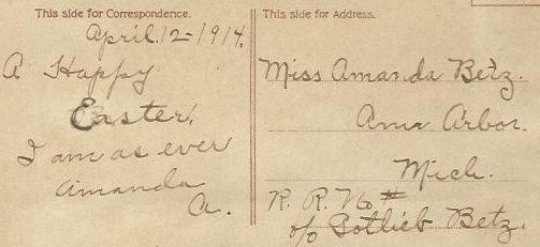 This side for Correspondence.
April.12-1914.
A Happy
Easter,
I am as ever
Amanda
A.
This side for Address.
Miss Amanda Betz.
Ann Arbor.
Mich.
R. R. No #
c/o Gotlieb Betz.